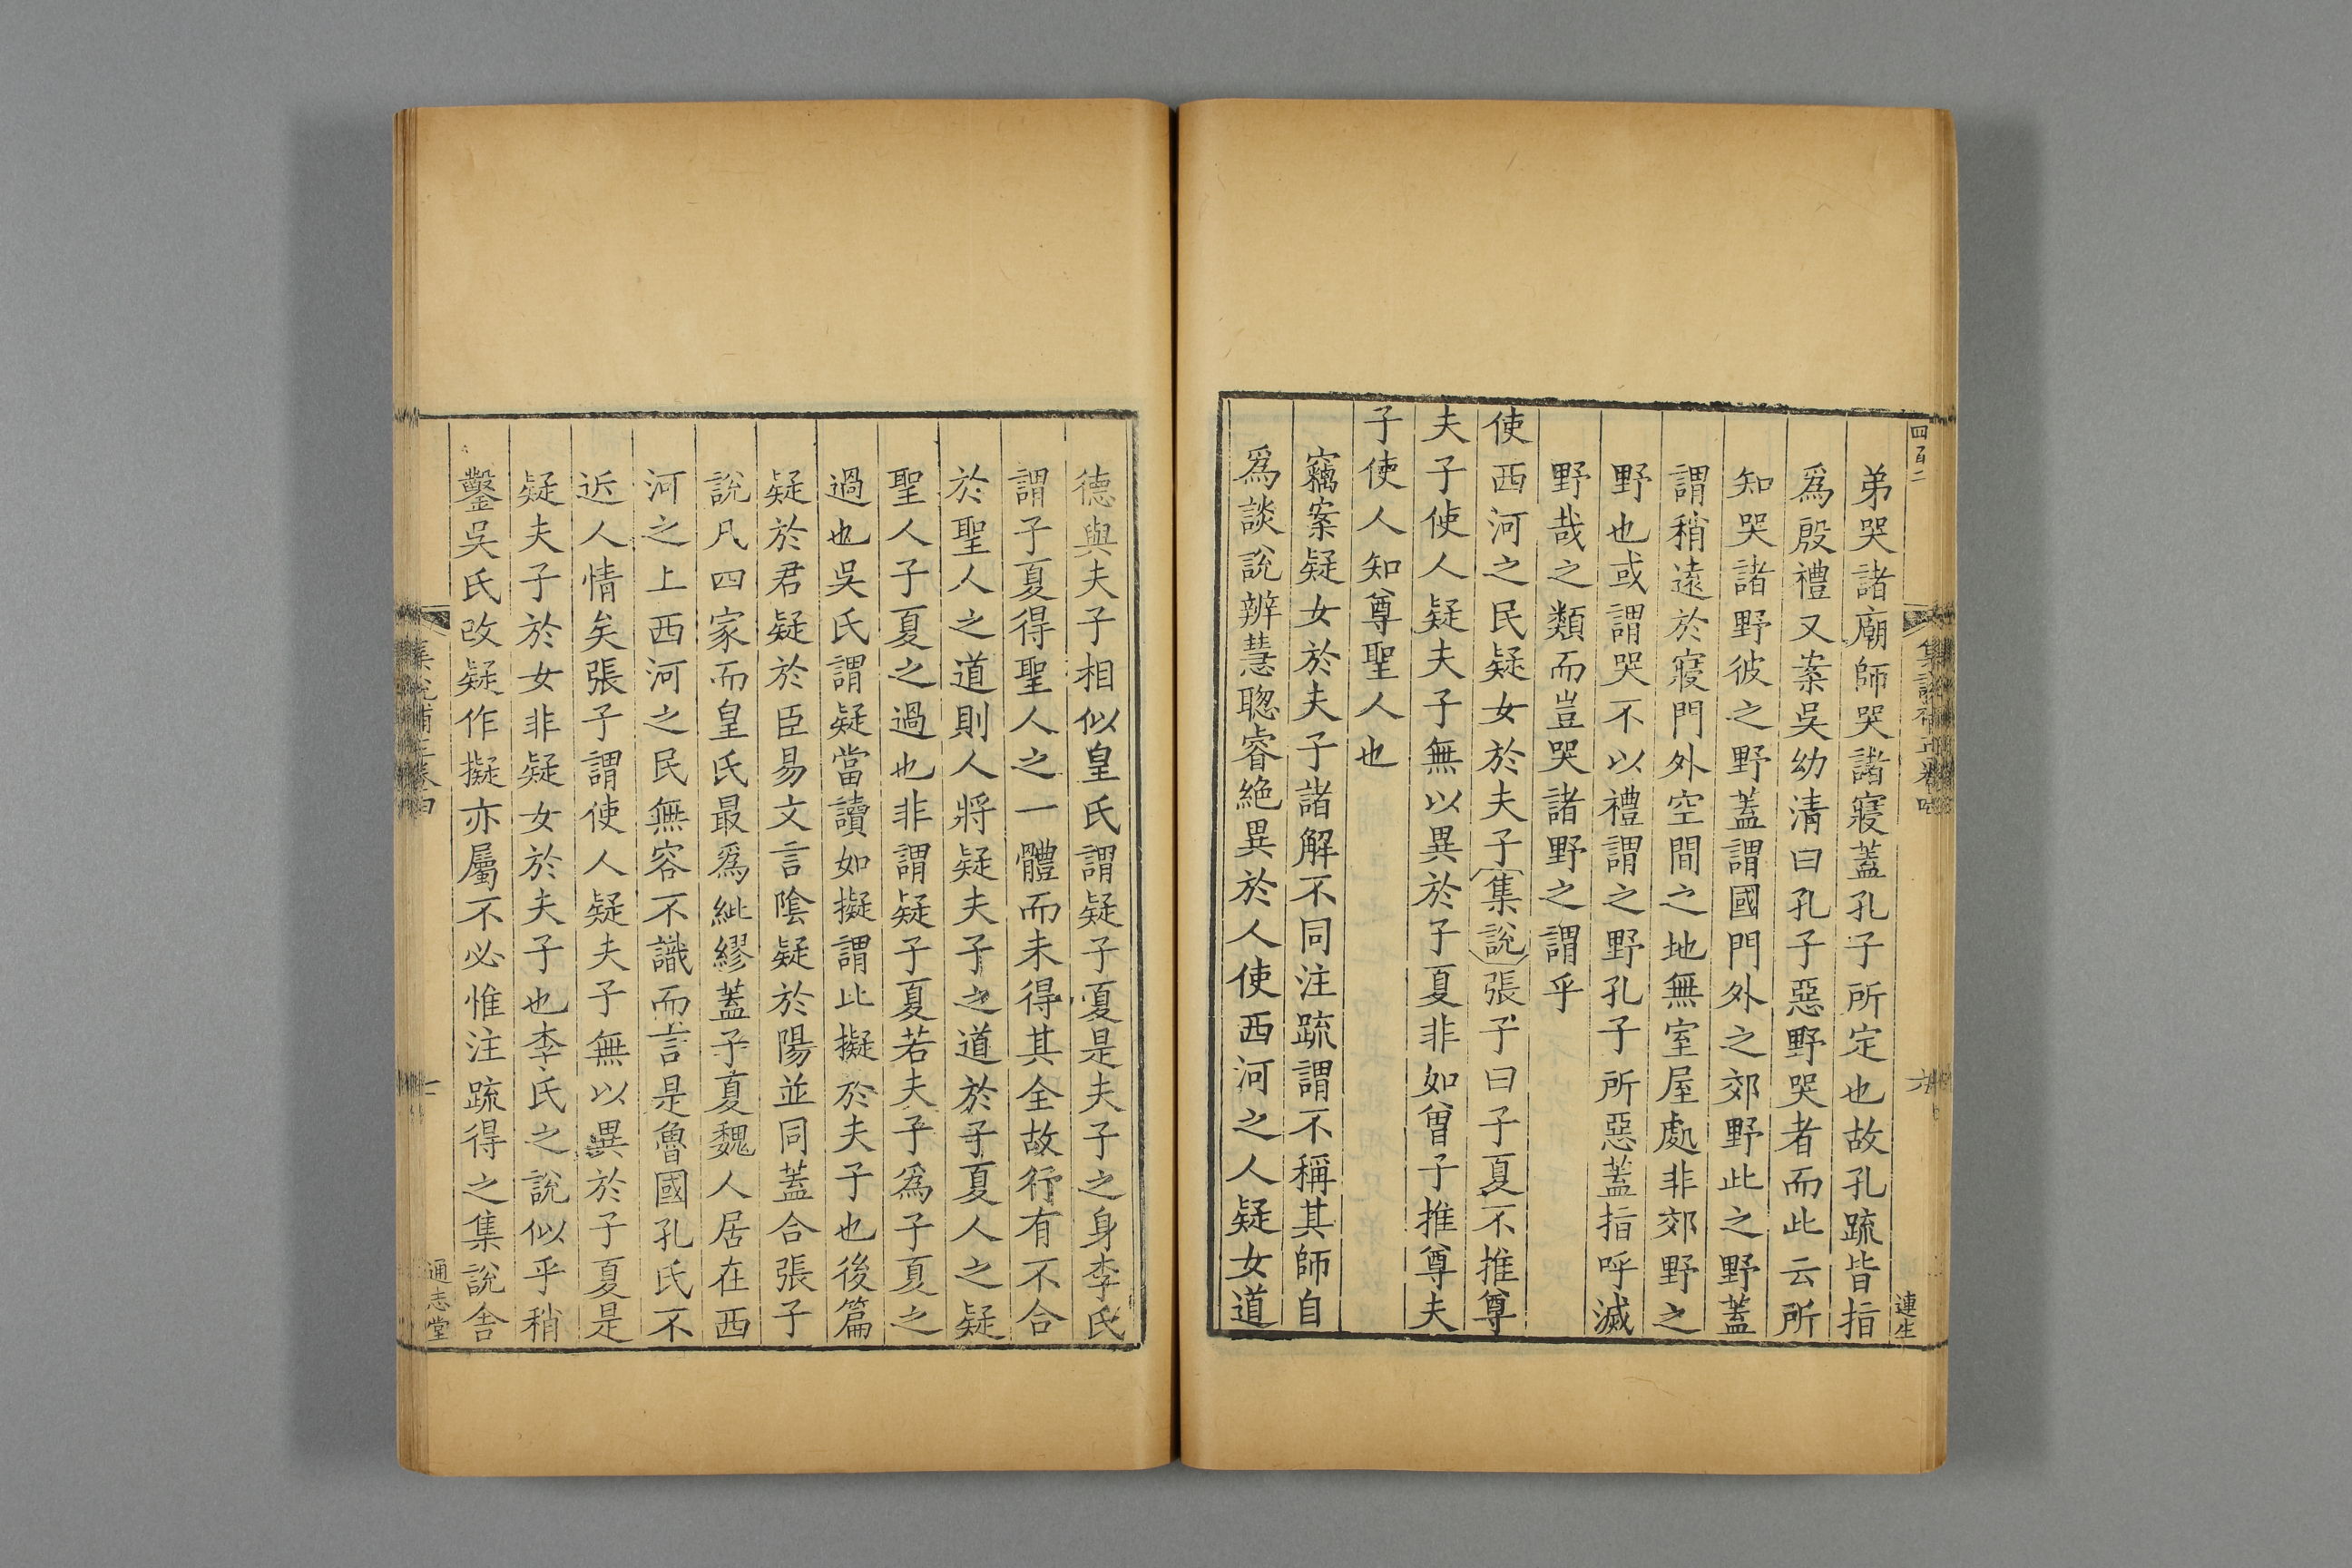 四百二
弟哭諸廟師哭諸寢蓋孔子所定也故孔疏皆指
爲殷禮又案吳幼清曰孔子惡野哭者而此云所
知哭諸野彼之野蓋謂國門外之郊野此之野蓋
謂稍遠於寢門外空閒之地無室屋處非郊野之
野也或謂哭不以禮謂之野孔子所惡蓋指呼滅
野哉之類而豈哭諸野之謂乎
使西河之民疑女於夫子集說張子曰子夏不推尊
夫子使人疑夫子無以異於子夏非如曾子推尊夫
子使人知尊聖人也
竊案疑女於夫子諸解不同注疏謂不稱其師自
爲談說辨慧聰睿絕異於人使西河之人疑女道
集說補正卷四
六
連生
德與夫子相似皇氏謂疑子夏是夫子之身李氏
謂子夏得聖人之一體而未得其全故行有不合
於聖人之道則人將疑夫子之道於子夏人之疑
聖人子夏之過也非謂疑子夏若夫子爲子夏之
過也吳氏謂疑當讀如擬謂比擬於夫子也後篇
疑於君疑於臣易文言陰疑於陽並同蓋合張子
說凡四家而皇氏最爲紕繆蓋子夏魏人居在西
河之上西河之民無容不識而言是魯國孔氏不
近人情矣張子謂使人疑夫子無以異於子夏是
疑夫子於女非疑女於夫子也李氏之說似乎稍
鑿吳氏改疑作擬亦屬不必惟注疏得之集說舍
集說補正卷四
通志堂